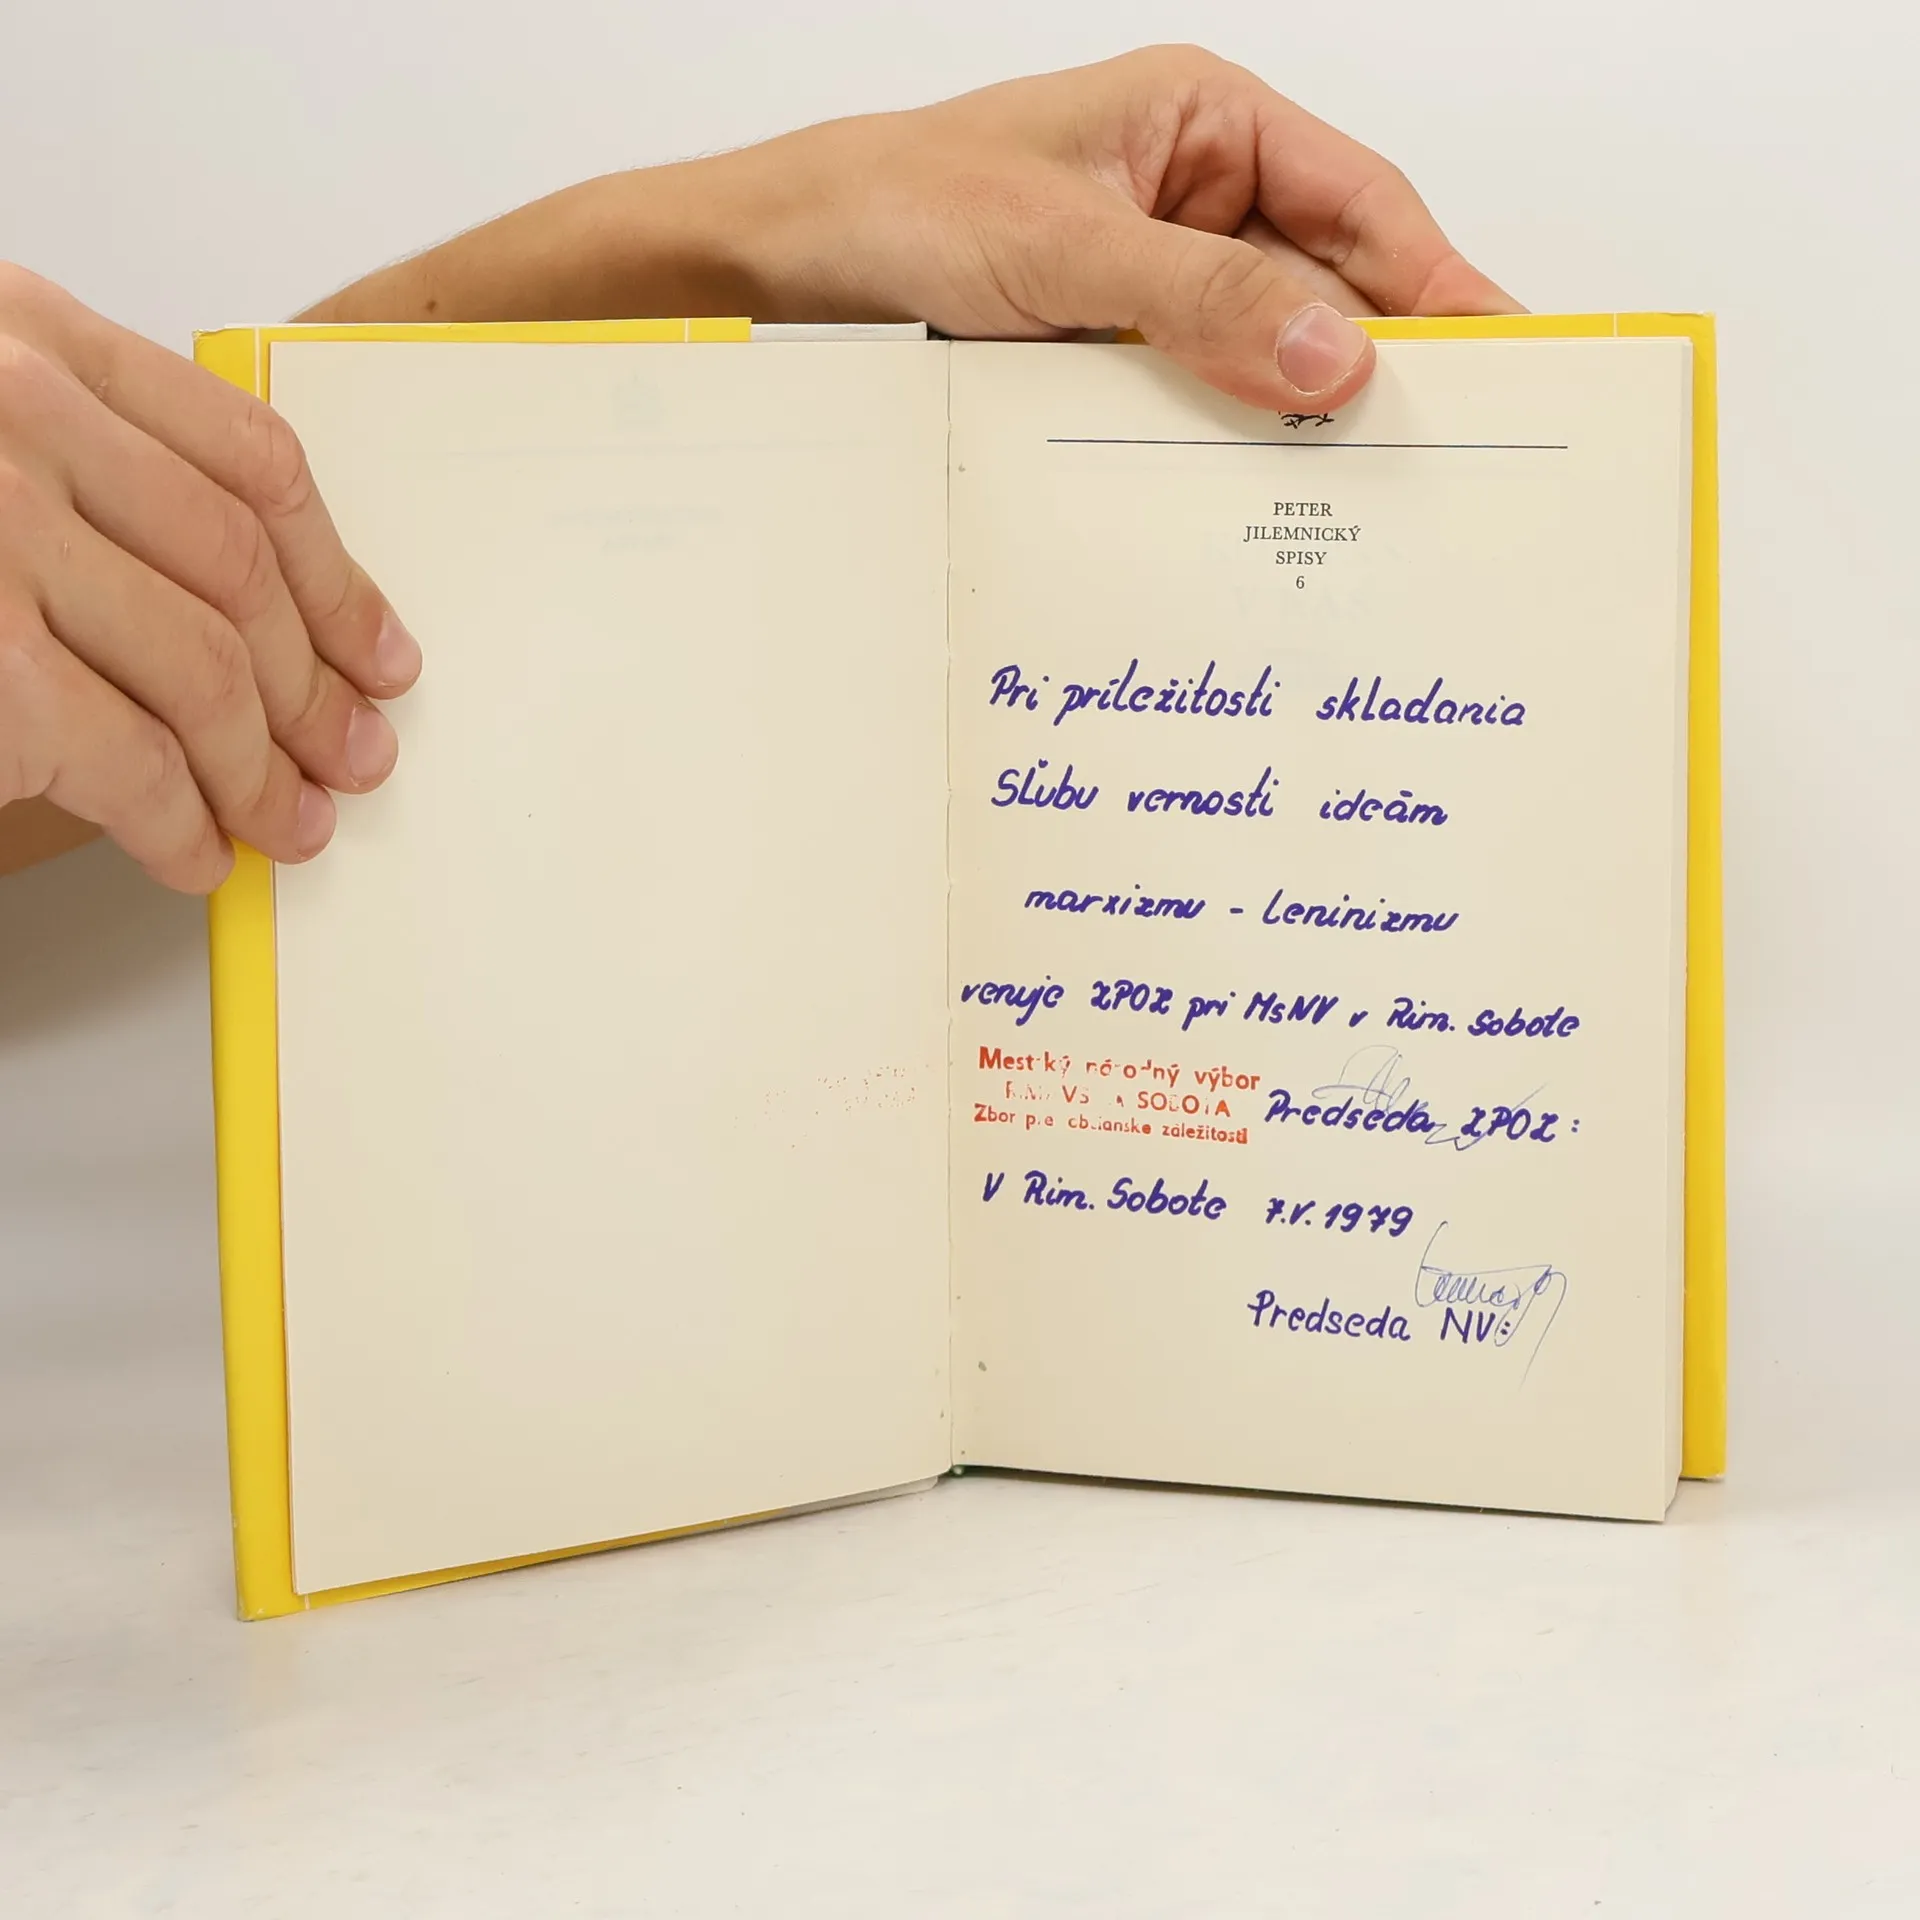 PETER
JILEMNICKÝ
SPISY
6
Pri príležitosti skladania
Sľubu vernosti ideám
marxizmu - leninizmu
venuje ZPOZ pri MsNV v Rim. Sobote
Mestský národný výbor
RIMAVSKÁ SOBOTA
Zbor pre občianske záležitosti
Predseda ZPOZ:
V Rim. Sobote 7.V. 1979
Predseda NV: